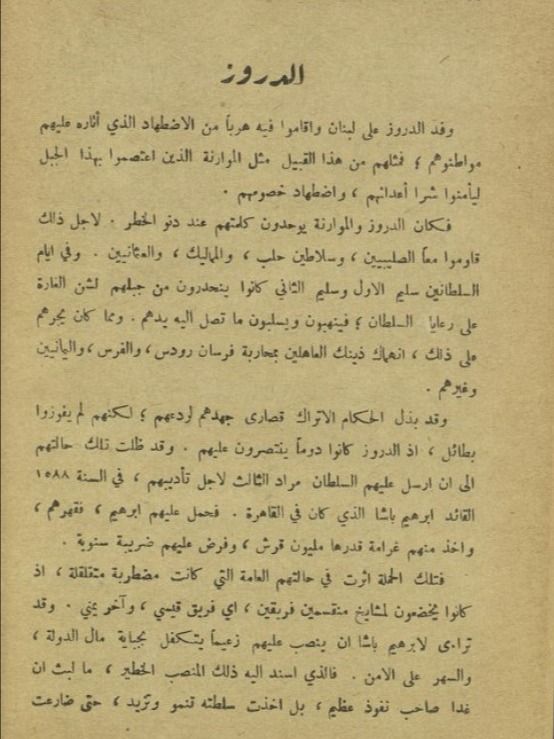 الدروز
وفد الدروز على لبنان واقاموا فيه هرباً من الاضطهاد الذي أثاره عليهم
مواطنوهم ؛ فمثلهم من هذا القبيل مثل الموارنة الذين اعتصموا بهذا الجبل
ليأمنوا شرا أعدائهم ، واضطهاد خصومهم .
فكان الدروز والموارنة يوحدون كلمتهم عند دنو الخطر . لاجل ذلك
قاوموا معاً الصليبيين ، وسلاطين حلب ، والمماليك ، والعثمانيين . وفي ايام
السلطانين سليم الاول وسليم الثاني كانوا ينحدرون من جبلهم لشن الغارة
على رعايا السلطان ؛ فينهبون ويسلبون ما تصل اليه يدهم . ومما كان يجرهم
على ذلك ، انهماك ذينك العاهلين بمحاربة فرسان رودس ، والفرس ، واليمانيين
وغيرهم .
وقد بذل الحكام الاتراك قصارى جهدهم لردعهم ؛ لكنهم لم يفوزوا
بطائل ، اذ الدروز كانوا دوماً ينتصرون عليهم . وقد ظلت تلك حالتهم
الى ان ارسل عليهم السلطان مراد الثالث لاجل تأديبهم ، في السنة ١٥٨٨
القائد ابرهيم باشا الذي كان في القاهرة . فحمل عليهم ابرهيم ، فقهرهم ،
واخذ منهم غرامة قدرها مليون قرش ، وفرض عليهم ضريبة سنوية .
فتلك الحملة اثرت في حالتهم العامة التي كانت مضطربة متقلقلة ، اذ
كانوا يخضعون لمشايخ منقسمين فريقين ، اي فريق قيسي ، وآخر يمني . وقد
تراءى لابرهيم باشا ان ينصب عليهم زعيماً يتكفل بجباية مال الدولة ،
والسهر على الامن . فالذي اسند اليه ذلك المنصب الخطير ، ما لبث ان
غدا صاحب نفوذ عظيم ، بل اخذت سلطته تنمو وتزيد ، حتى ضارعت